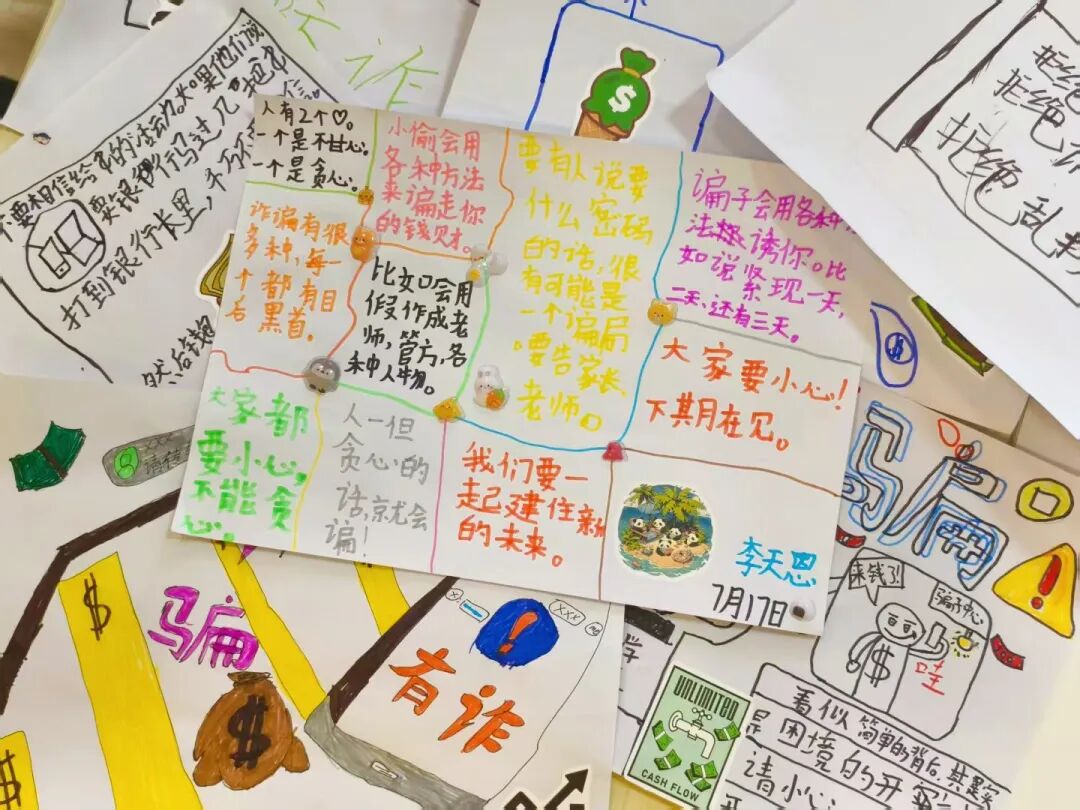 诈
不要相信给多的活动
要银彳
打到银行卡里,千万
然后钱
拒绝
拒绝
拒绝乱
人有2个♡。
一个是不甘心。
一个是贪心。
小偷会用
各种方法
来骗走你
的钱财。
要有人说要
什么密码
的话,很
有可能是
一个骗局
。要告家长、
老师。
骗子会用各种
法来诱你。比
如说紧现一天,
二天、还有三天。
诈骗有很
多种,每一
个都有目
后黑首。
比如会用
假作成老
师,管方,各
种人物。
大家要小心!
下其月在见。
大家都
要小心,
不能贪
心。
人一但
贪心的
话,就会
骗!
我们要一
起建住新
的未来。
李天恩
7月17日
$
$
骗
$
$
!
XXX
有诈
骗
!
来钱了!
骗子中心
$
哇
UNLIMITED
CASH FLOW
看似简单的背后,其
是困境的开
请小心